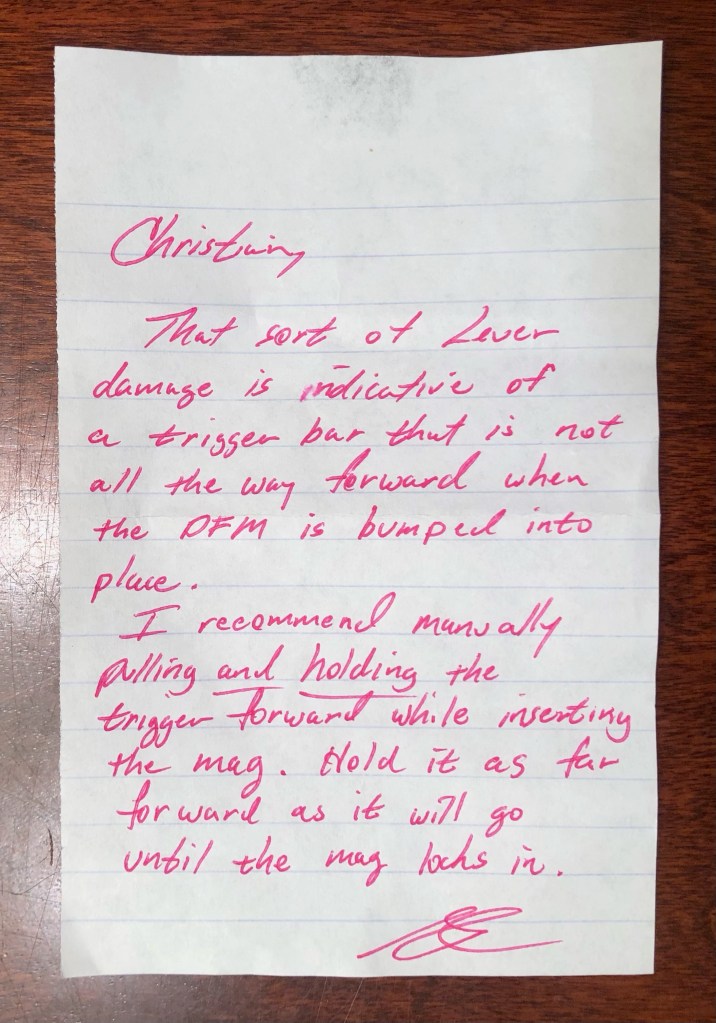 Christian,
That sort of Lever
damage is indicative of
a trigger bar that is not
all the way forward when
the DFM is bumped into
place.
I recommend manually
pulling and holding the
trigger forward while inserting
the mag. Hold it as far
forward as it will go
until the mag locks in.